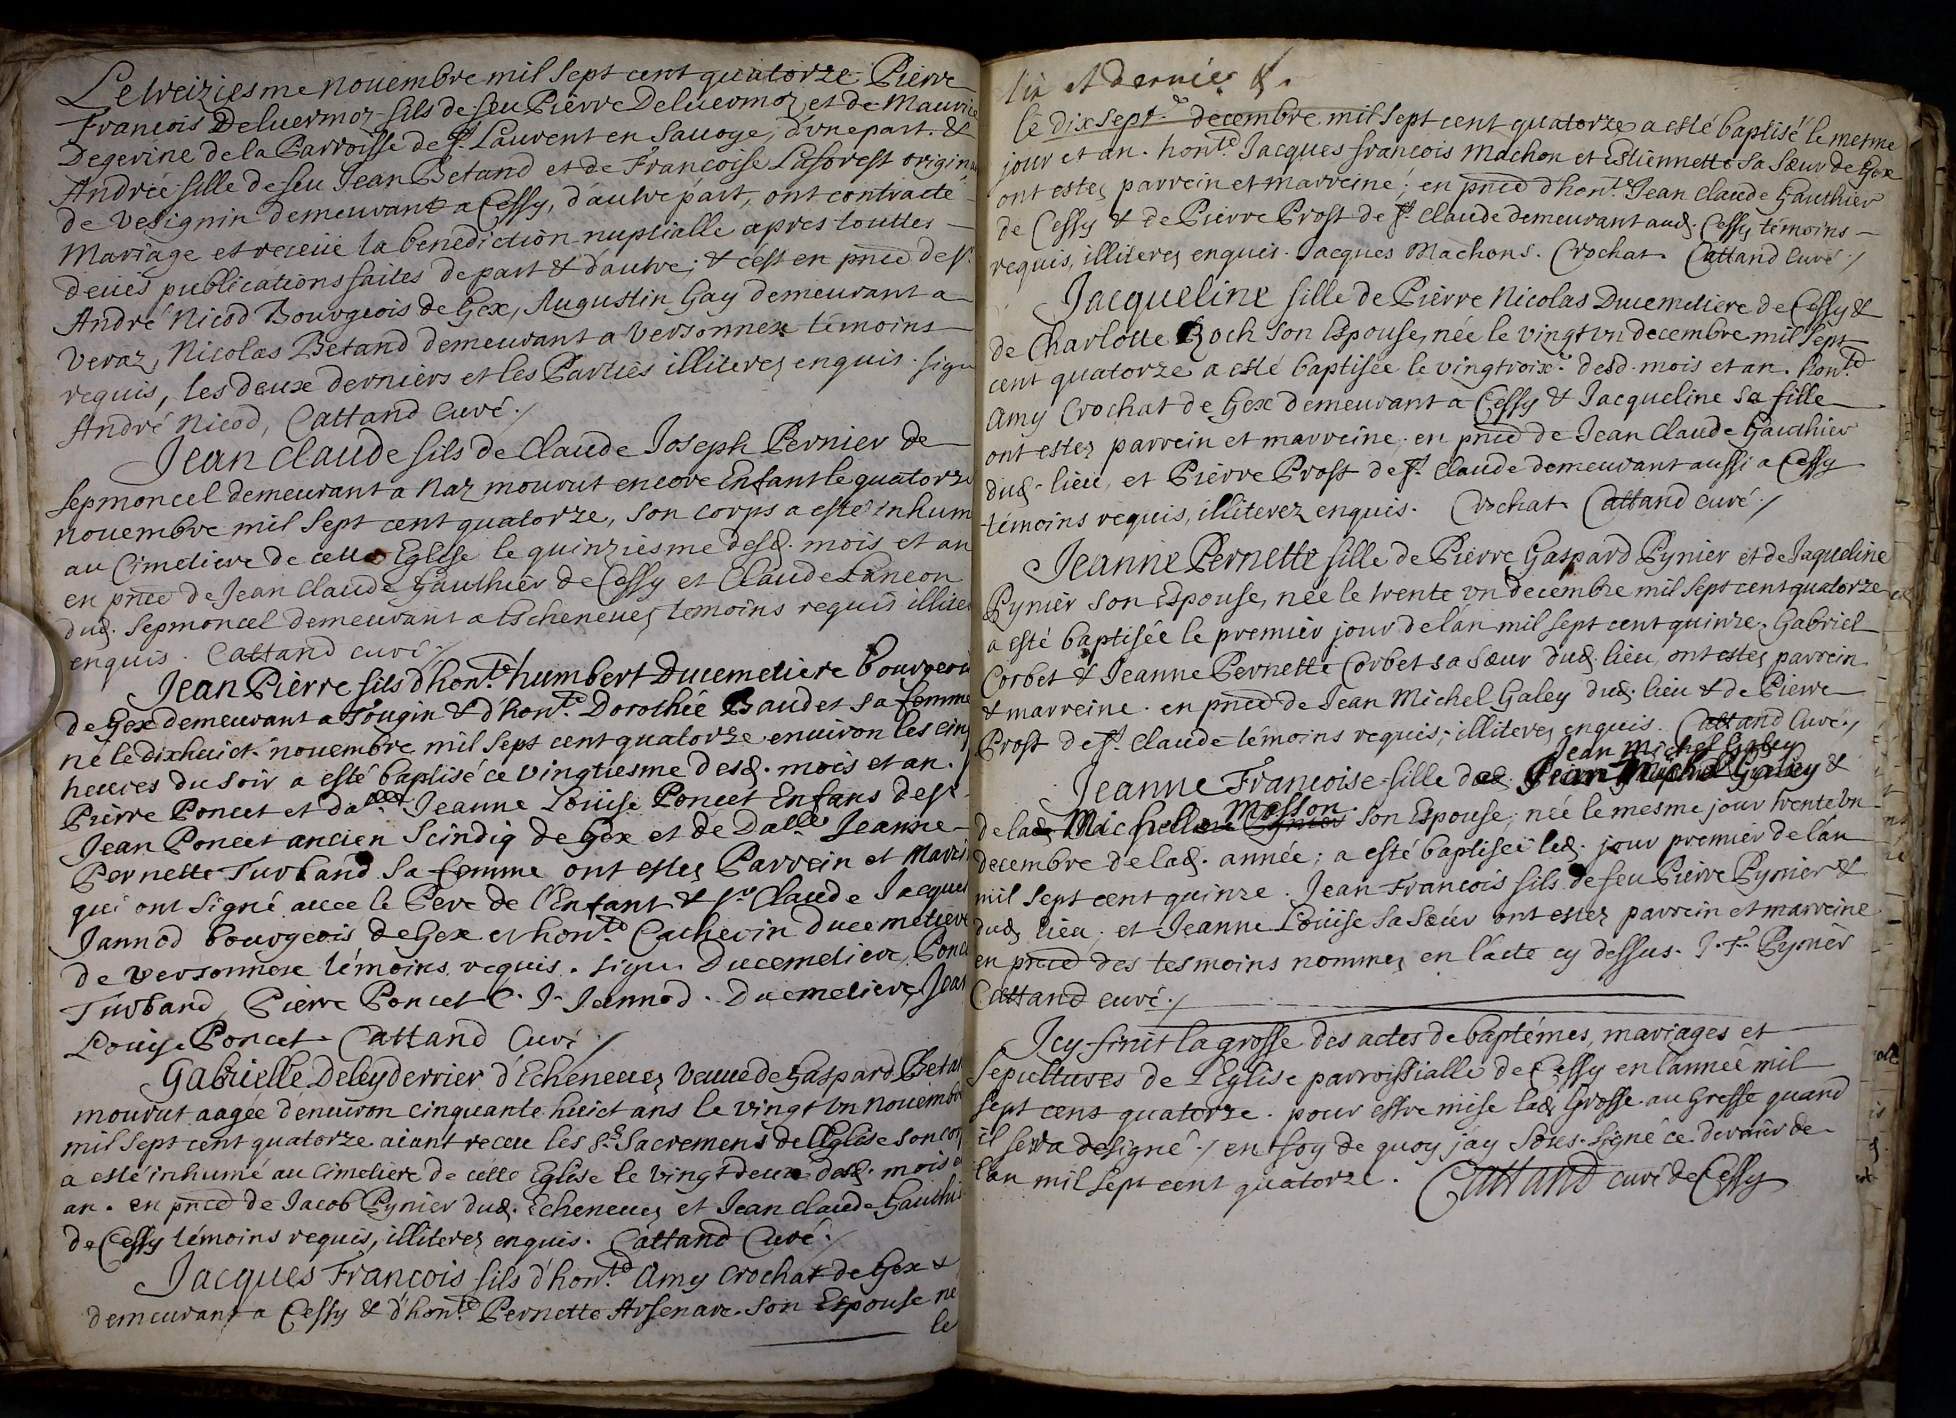 Le treiziesme novembre mil sept cent quatorze Pierre
François Deluermoz fils de feu Pierre Deluermoz et de Maurice
Degerine de la Parroisse de St. Laurent en Savoye, d'vne part. &
Andrée fille de feu Jean Betand et de Françoise Lasorest origin
de Vesignin demeurant a Cessy, d'autre part, ont contracté
Mariage et receüe la benediction nuptialle apres touttes
deües publications faites de part & d'autre; & c'est en pñce de sr.
André Nicod Bourgeois de Gex, Augustin Gay demeurant a
Veraz, Nicolas Betand demeurant a Versonnex témoins
requis, les deux derniers et les Parties illiterez enquis. signé
André Nicod, Cattand Curé./
Jean Claude fils de Claude Joseph Pernier de
Sepmoncel demeurant a Naz mourut encore Enfant le quatorze
novembre mil sept cent quatorze, son corps a esté inhum
au Cimetiere de cette Eglise le quinziesme desd. mois et an
en pñce de Jean Claude Gauthier de Cessy et Claude Lancon
dud. Sepmoncel demeurant a Escheneuez temoins requis illite
enquis. Cattand curé./
Jean Pierre fils d'hon.te humbert Ducemetiere bourgeois
de Gex demeurant a Tougin & d'hon.te Dorothée Baudet sa femme
né le dixhuict.e novembre mil sept cent quatorze environ les cinq
heures du soir a esté baptisé ce vingtiesme desd. mois et an.
Pierre Poncet et da.lle Jeanne Loüise Poncet Enfans de sr.
Jean Poncet ancien Scindiq de Gex et de Dalle Jeanne
Pernette Turband sa femme ont estez Parrein et Marrei
qui ont signé avec le Pere de l'Enfant & sr. Claude Jacques
Jannod bourgeois de Gex et hon.te Catherin Ducemetiere
de Versonnex témoins requis. signé Ducemetiere, Ponc
Turband, Pierre Poncet C. J. Jannod. Ducemetiere, Jean
Louise Poncet Cattand Curé./
Gabrielle Deleyderrier d'Echeneuez veuue de Gaspard Betan
mourut aagée d'enuiron cinquante huict ans le vingt vn Novembre
mil sept cent quatorze aiant receu les Sts. Sacremens de l'Eglise son cor
a esté inhumé au Cimetiere de cette Eglise le vingt deux desd. mois et
an. en pñce de Jacob Pynier dud. Echeneuez et Jean Claude Gauthi
de Cessy témoins requis, illiterez enquis. Cattand Curé./
Jacques François fils d'hon.te Amy Crochat de Gex &
demeurant a Cessy & d'hon.te Pernette Arsenare son Espouse né
le
et dernier
le dix sept.e decembre mil sept cent quatorze a esté baptisé le mesme
jour et an. hon.te Jacques francois Machon et Estiennette sa Sœur de Gex
ont estez parrein et marreine; en pñce d'hon.te Jean Claude Gauthier
de Cessy & de Pierre Prost de St. Claude demeurant aud. Cessy témoins
requis, illiterez enquis. Jacques Machons. Crochat Cattand Curé./
Jacqueline fille de Pierre Nicolas Ducemetiere de Cessy &
de Charlotte Roch son Espouse, née le vingt vn decembre mil sept
cent quatorze a esté baptisée le vingtroix.e desd. mois et an. hon.te
Amy Crochat de Gex demeurant a Cessy & Jacqueline sa fille
ont estez parrein et marreine. en pñce de Jean Claude Gauthier
dud. lieu, et Pierre Prost de St. Claude demeurant aussi a Cessy
témoins requis, illiterez enquis. Crochat Cattand curé./
Jeanne Pernette fille de Pierre Gaspard Pynier et de Jaqueline
Pynier son Espouse, née le trente vn decembre mil sept cent quatorze
a esté baptisée le premier jour de l'an mil sept cent quinze. Gabriel
Corbet & Jeanne Pernette Corbet sa Sœur dud. lieu, ont estez parrein
& marreine. en pñce de Jean Michel Galey dud. lieu & de Pierre
Prost de St. Claude témoins requis, illiterez enquis. Cattand Curé./
Jean Michel Galey
Jeanne Françoise fille de Jean Michel Galey &
Mosson
de lad. Michelle son Espouse, née le mesme jour trente vn
decembre de lad. année; a esté baptisée led. jour premier de l'an
mil sept cent quinze. Jean François fils de feu Pierre Pynier &
dud. lieu; et Jeanne Loüise sa Sœur ont estez parrein et marreine
en pñce des tesmoins nommez en l'acte cy dessus. J. F. Pynier
Cattand curé./
Icy finit la grosse des actes de baptémes, mariages et
Sepultures de l'Eglise parroissialle de Cessy en l'année mil
sept cent quatorze. pour estre mise lad. Grosse au Greffe quand
il sera designé./ en foy de quoy j'ay sous-signé ce dernier de
l'an mil sept cent quatorze. Cattand curé de Cessy